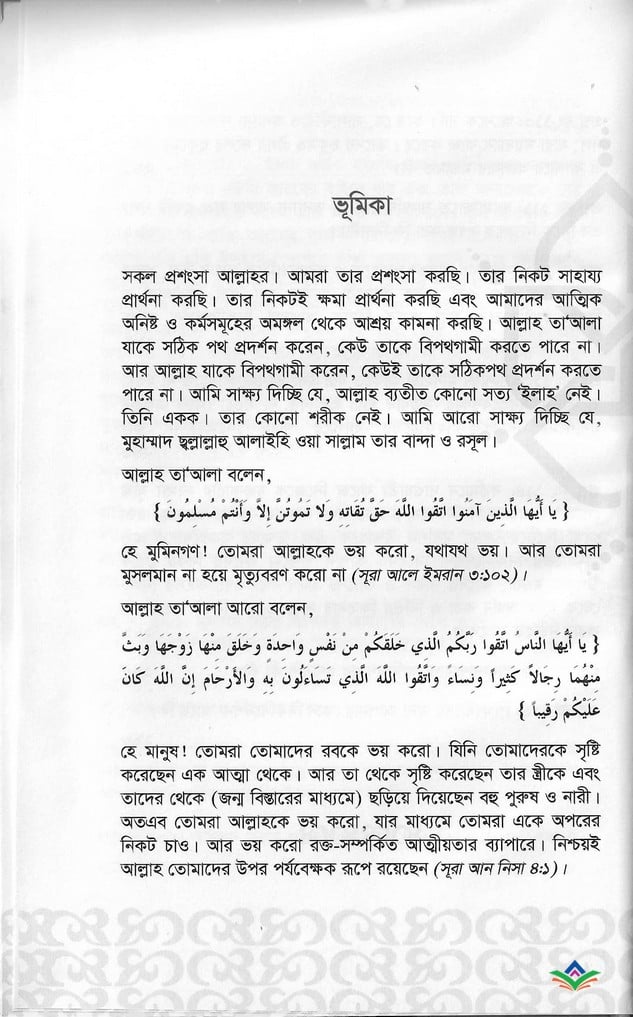 ভূমিকা
সকল প্রশংসা আল্লাহর। আমরা তার প্রশংসা করছি। তার নিকট সাহায্য
প্রার্থনা করছি। তার নিকটই ক্ষমা প্রার্থনা করছি এবং আমাদের আত্মিক
অনিষ্ট ও কর্মসমূহের অমঙ্গল থেকে আশ্রয় কামনা করছি। আল্লাহ তা‘আলা
যাকে সঠিক পথ প্রদর্শন করেন, কেউ তাকে বিপথগামী করতে পারে না।
আর আল্লাহ যাকে বিপথগামী করেন, কেউই তাকে সঠিকপথ প্রদর্শন করতে
পারে না। আমি সাক্ষ্য দিচ্ছি যে, আল্লাহ ব্যতীত কোনো সত্য ‘ইলাহ’ নেই।
তিনি একক। তার কোনো শরীক নেই। আমি আরো সাক্ষ্য দিচ্ছি যে,
মুহাম্মাদ ছ্বল্লাল্লাহু আলাইহি ওয়া সাল্লাম তার বান্দা ও রসূল।
আল্লাহ তা‘আলা বলেন,
{ يَا أَيُّهَا الَّذِينَ آمَنُوا اتَّقُوا اللَّهَ حَقَّ تُقَاتِهِ وَلا تَمُوتُنَّ إِلاَّ وَأَنْتُمْ مُسْلِمُونَ }
হে মুমিনগণ! তোমরা আল্লাহকে ভয় করো, যথাযথ ভয়। আর তোমরা
মুসলমান না হয়ে মৃত্যুবরণ করো না (সূরা আলে ইমরান ৩:১০২)।
আল্লাহ তা‘আলা আরো বলেন,
{ يَا أَيُّهَا النَّاسُ اتَّقُوا رَبَّكُمُ الَّذِي خَلَقَكُمْ مِنْ نَفْسٍ وَاحِدَةٍ وَخَلَقَ مِنْهَا زَوْجَهَا وَبَثَّ
مِنْهُمَا رِجَالاً كَثِيراً وَنِسَاءً وَاتَّقُوا اللَّهَ الَّذِي تَسَاءَلُونَ بِهِ وَالأَرْحَامَ إِنَّ اللَّهَ كَانَ
عَلَيْكُمْ رَقِيباً }
হে মানুষ! তোমরা তোমাদের রবকে ভয় করো। যিনি তোমাদেরকে সৃষ্টি
করেছেন এক আত্মা থেকে। আর তা থেকে সৃষ্টি করেছেন তার স্ত্রীকে এবং
তাদের থেকে (জন্ম বিস্তারের মাধ্যমে) ছড়িয়ে দিয়েছেন বহু পুরুষ ও নারী।
অতএব তোমরা আল্লাহকে ভয় করো, যার মাধ্যমে তোমরা একে অপরের
নিকট চাও। আর ভয় করো রক্ত-সম্পর্কিত আত্মীয়তার ব্যাপারে। নিশ্চয়ই
আল্লাহ তোমাদের উপর পর্যবেক্ষক রূপে রয়েছেন (সূরা আন নিসা ৪:১)।